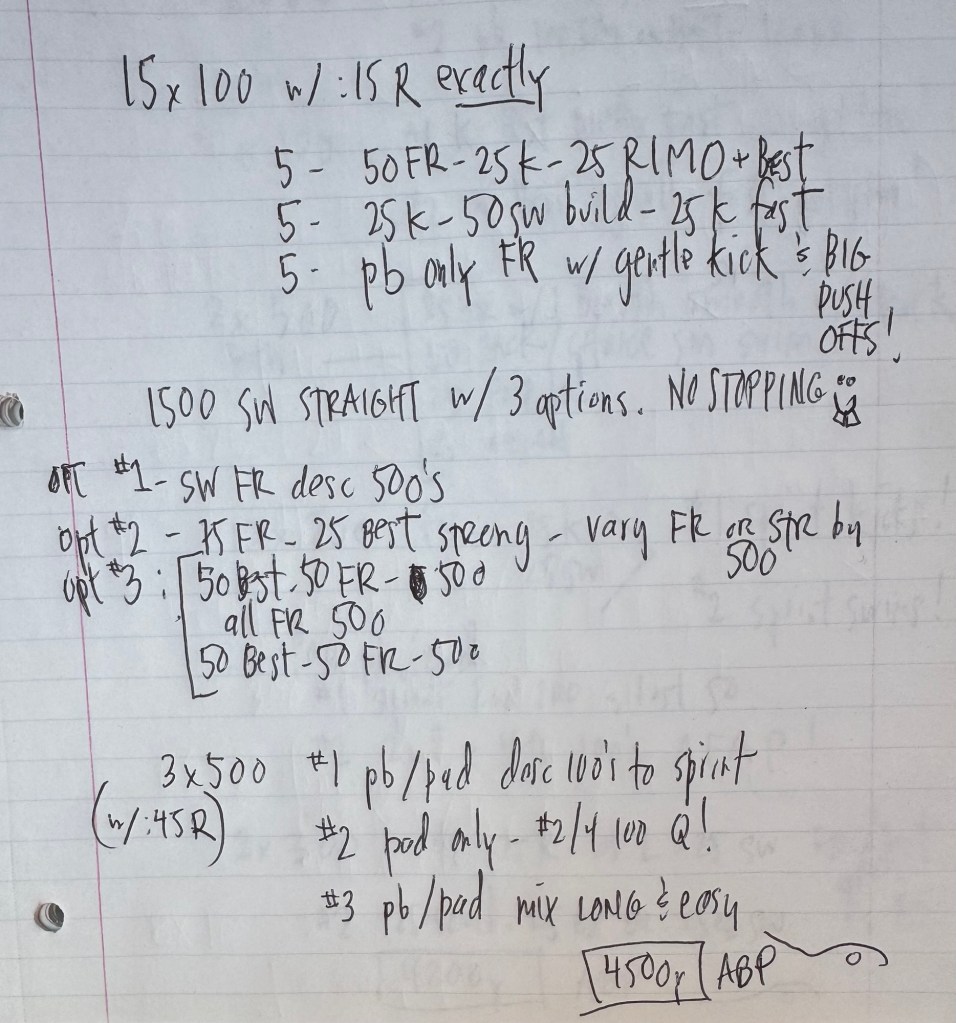 15x100 w/ :15 R exactly
5 - 50 FR - 25 k - 25 RIMO + Best
5 - 25 k - 50 sw build - 25 k fast
5 - pb only FR w/ gentle kick & BIG
PUSH
OFFS!
1500 SW STRAIGHT w/ 3 options. NO STOPPING
OPT #1 - SW FR desc 500's
opt #2 - 75 FR - 25 Best strong - vary FR or STR by
500
opt #3 : 50 Best - 50 FR - 500
all FR 500
50 Best - 50 FR - 500
3x500 #1 pb/pad desc 100's to sprint
(w/ :45 R) #2 pad only - #2/4 100 Q!
#3 pb/pad mix LONG & easy
4500y ABP